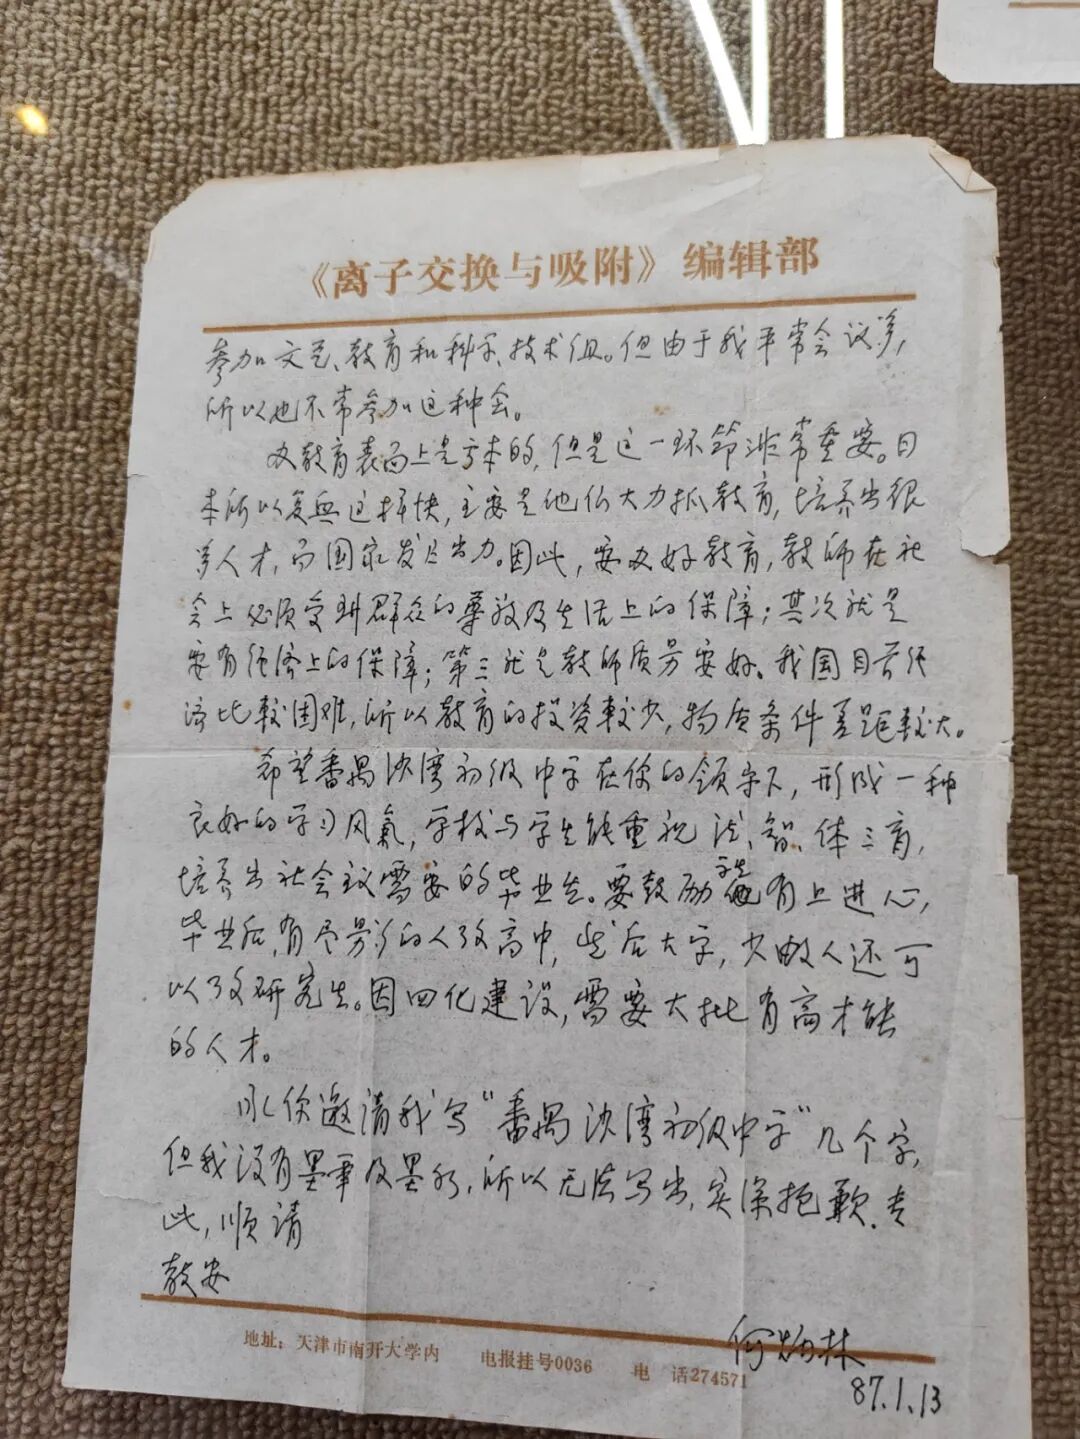 《离子交换与吸附》编辑部
参加文艺、教育和科学、技术组。但由于我平常会议多，
所以也不常参加这种会。
办教育表面上是亏本的，但是这一环节非常重要。日
本所以复兴这样快，主要是他们大力抓教育，培养出很
多人才，为国家发展出力。因此，要办好教育，教师在社
会上必须受到群众的尊敬及生活上的保障；其次就是
要有经济上的保障；第三就是教师质量要好。我国目前经
济比较困难，所以教育的投资较少，物质条件差距较大。
希望番禺沙湾初级中学在你的领导下，形成一种
良好的学习风气，学校与学生能重视德、智、体三育，
培养出社会主义需要的毕业生。要鼓励学生有上进心，
毕业后，有尽量多的人攻高中，然后大学，少数人还可
以攻研究生。因四化建设，需要大批有高才能
的人才。
承你邀请我写“番禺沙湾初级中学”几个字，
但我没有墨笔及墨水，所以无法写出，实深抱歉。专
此，顺请
教安
何炳林
87.1.13
地址：天津市南开大学内 电报挂号0036 电 话274571